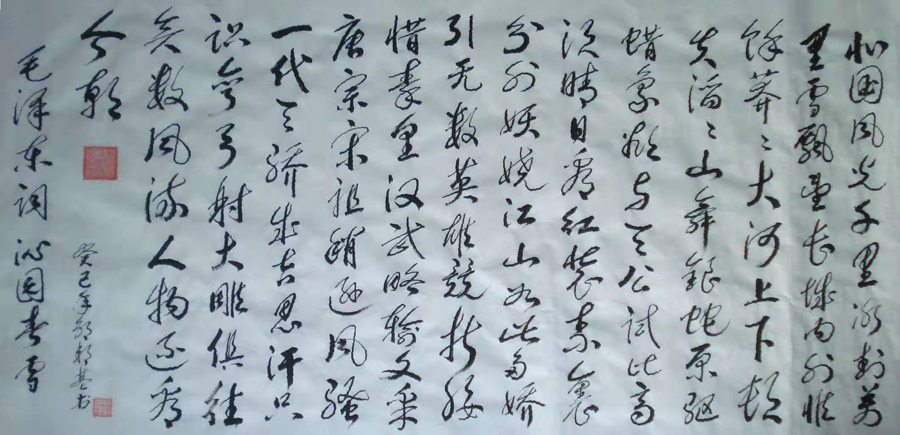 北国风光千里冰封万
里雪飘望长城内外惟
馀莽々大河上下顿
失滔々山舞银蛇原驰
蜡象欲与天公试比高
须晴日看红装素裹
分外妖娆江山如此多娇
引无数英雄竞折腰
惜秦皇汉武略输文采
唐宗宋祖稍逊风骚
一代天骄成吉思汗只
识弯弓射大雕俱往
矣数风流人物还看
今朝
毛泽东词沁园春雪
癸巳年书